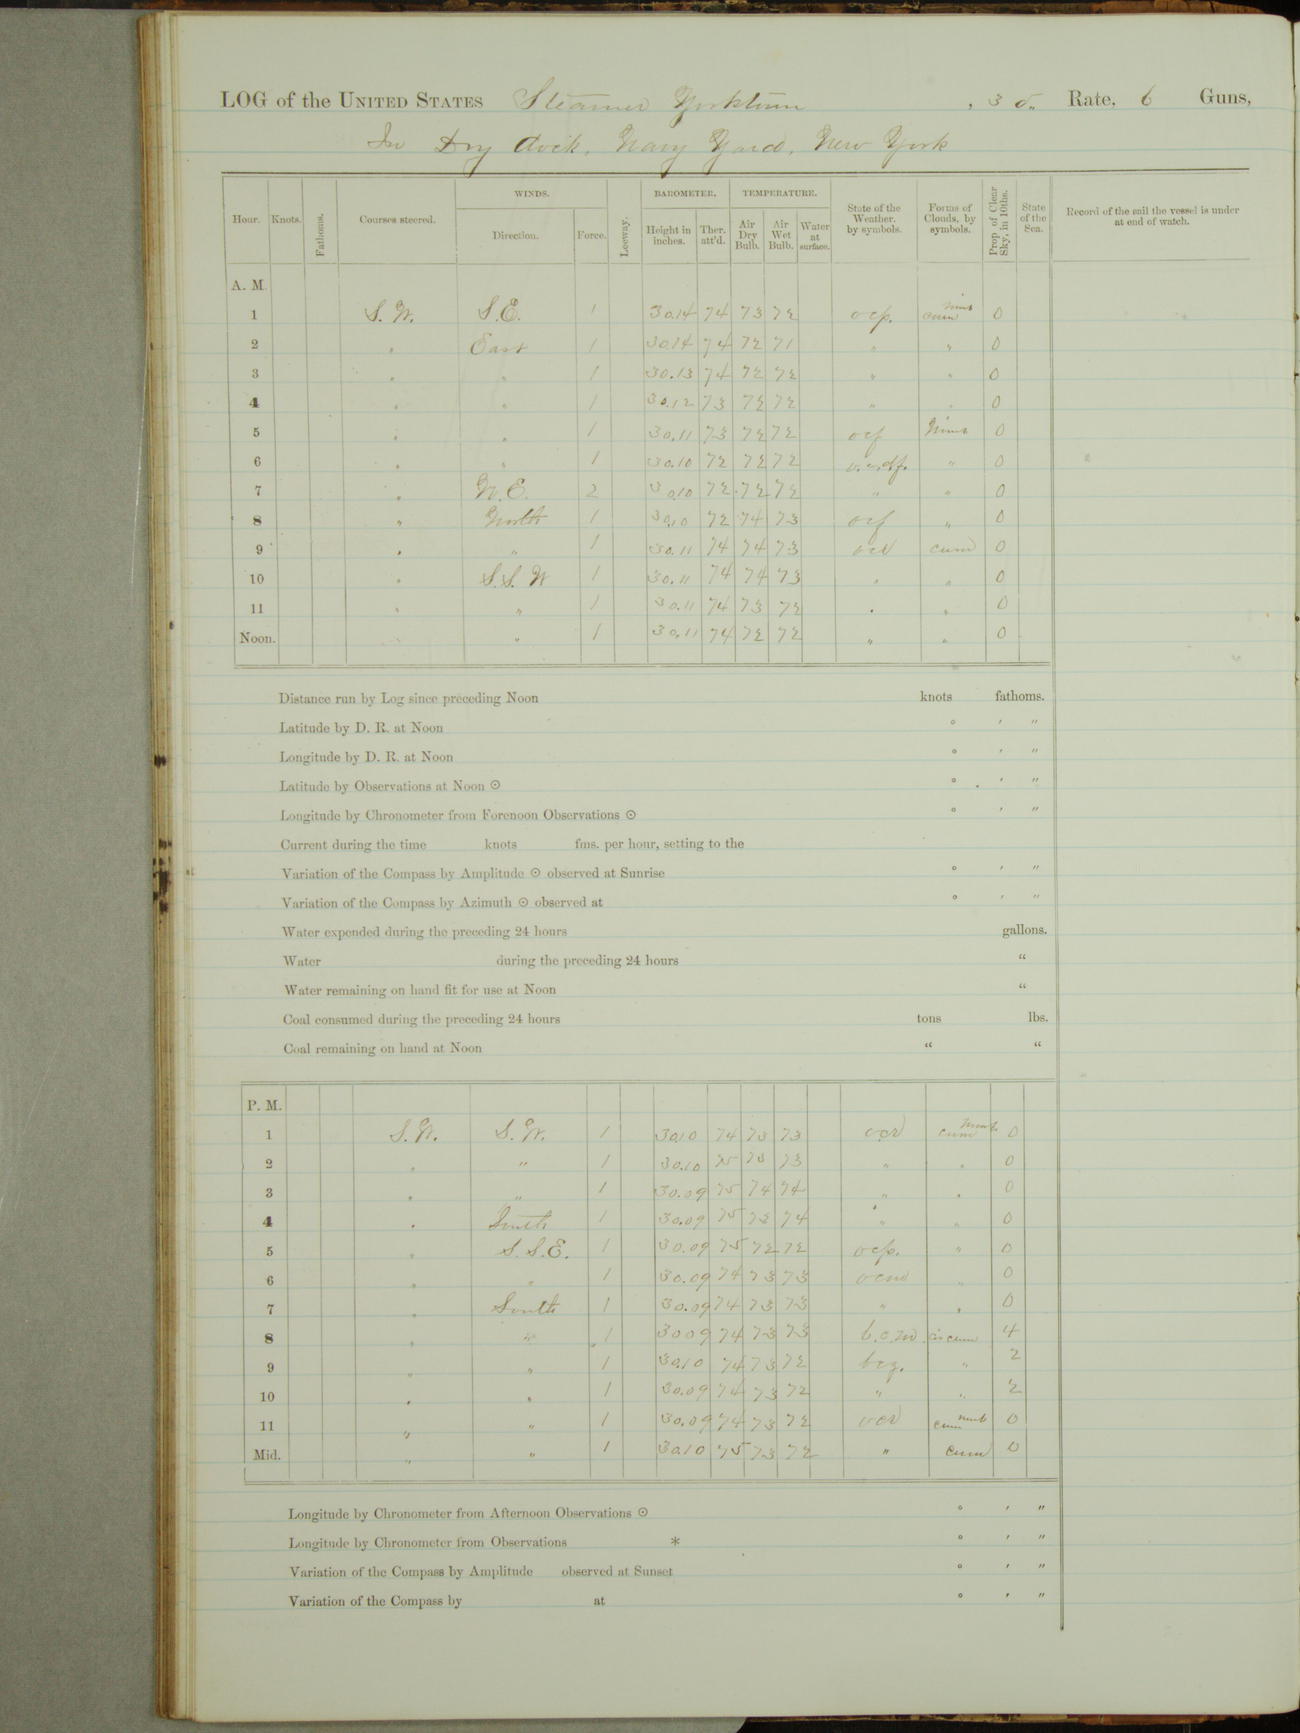 LOG of the UNITED STATES Steamer Yorktown , 3 d. Rate, 6 Guns,
In Dry dock, Navy Yard, New York
Hour. Knots. Fathoms. Courses steered. WINDS. Direction. Force. Leeway. BAROMETER. Height in inches. Ther. att'd. TEMPERATURE. Air Dry Bulb. Air Wet Bulb. Water at surface. State of the Weather. by symbols. Forms of Clouds, by symbols. Prop of Clear Sky, in 10ths. State of the Sea. Record of the sail the vessel is under at end of watch.
A. M.
1 S.W. S.E. 1 30.14 74 73 72 ocp. cum nimb 0
2 " East 1 30.14 74 72 71 " " 0
3 " " 1 30.13 74 72 72 " " 0
4 " " 1 30.12 73 72 72 " " 0
5 " " 1 30.11 73 72 72 ocf Nimb 0
6 " " 1 30.10 72 72 72 " 0
7 " N.E. 2 30.10 72 72 72 " " 0
8 " North 1 30.10 72 74 73 ocf " 0
9 " " 1 30.11 74 74 73 ocd cum 0
10 " S.S.W 1 30.11 74 74 73 " " 0
11 " " 1 30.11 74 73 72 " " 0
Noon. " " 1 30.11 74 72 72 " " 0
Distance run by Log since preceding Noon knots fathoms.
Latitude by D. R. at Noon ° ′ ″
Longitude by D. R. at Noon ° ′ ″
Latitude by Observations at Noon ⊙ ° ′ ″
Longitude by Chronometer from Forenoon Observations ⊙ ° ′ ″
Current during the time knots fms. per hour, setting to the
Variation of the Compass by Amplitude ⊙ observed at Sunrise ° ′ ″
Variation of the Compass by Azimuth ⊙ observed at ° ′ ″
Water expended during the preceding 24 hours gallons.
Water during the preceding 24 hours "
Water remaining on hand fit for use at Noon "
Coal consumed during the preceding 24 hours tons lbs.
Coal remaining on hand at Noon " "
P. M.
1 S.W. S.W. 1 30.10 74 73 73 ocd cum nimb 0
2 " " 1 30.10 75 73 73 " " 0
3 " " 1 30.09 75 74 74 " " 0
4 " South 1 30.09 75 72 74 " " 0
5 " S.S.E. 1 30.09 75 72 72 ocp. " 0
6 " " 1 30.09 74 73 73 ocm " 0
7 " South 1 30.09 74 73 73 " " 0
8 " " 1 30.09 74 73 73 b.c.m cir cum 4
9 " " 1 30.10 74 73 72 bcq. " 2
10 " " 1 30.09 74 73 72 " " 2
11 " " 1 30.09 74 73 72 ocd cum nimb 0
Mid. " " 1 30.10 75 73 72 " cum 0
Longitude by Chronometer from Afternoon Observations ⊙ ° ′ ″
Longitude by Chronometer from Observations * ° ′ ″
Variation of the Compass by Amplitude observed at Sunset ° ′ ″
Variation of the Compass by at ° ′ ″